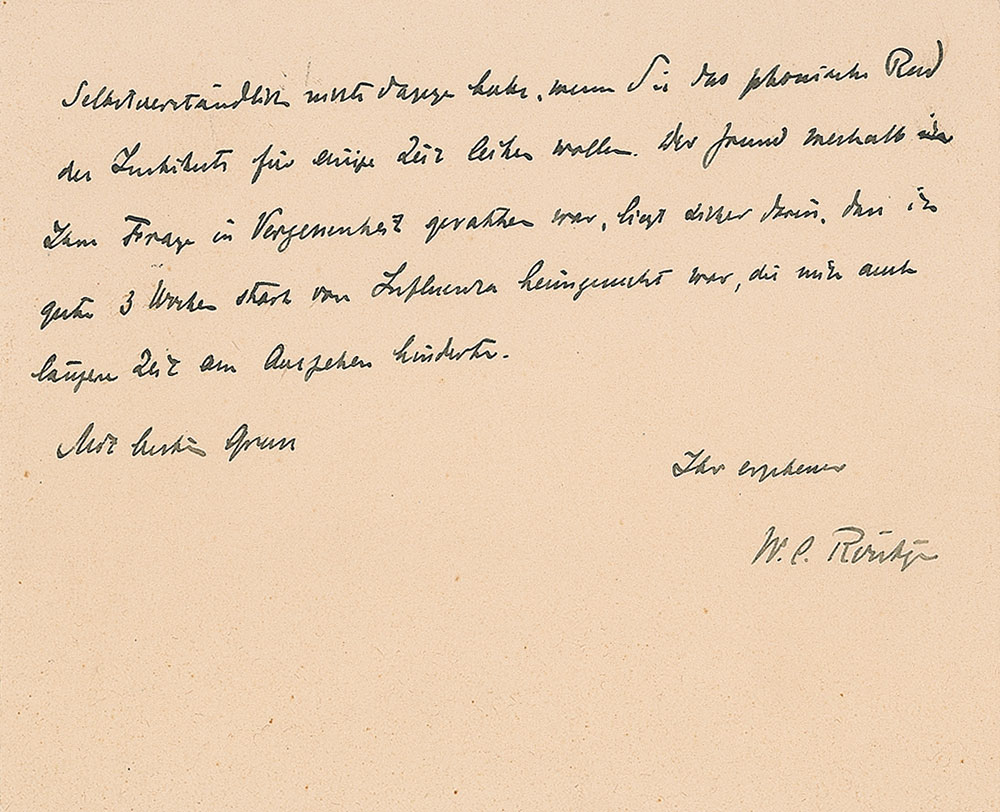 Selbstverständlich nichts dagegen habe, wenn Sie das phonische Rad
des Instituts für einige Zeit leihen wollen. Der Grund weshalb
Ihre Frage in Vergessenheit gerathen war, liegt sicher darin, dass ich
gute 3 Wochen stark von Influenza heimgesucht war, die mich auch
längere Zeit am Ausgehen hinderte.
Mit bestem Gruss
Ihr ergebener
W. C. Röntgen